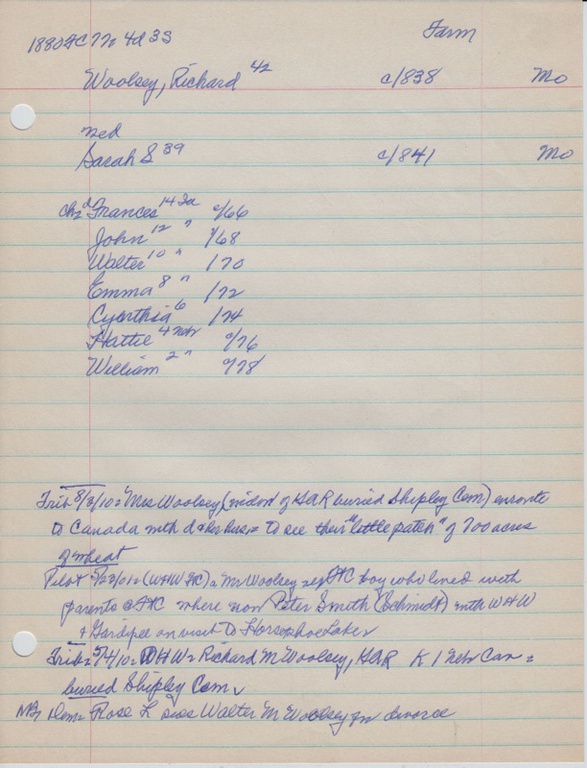 1880 FC 770 4d 33 Farm
Woolsey, Richard 42 c/838 Mo
Sarah S 39 c/841 Mo
chz Frances 14 Ia c/66
John 12 " /68
Walter 10 " /70
Emma 8 " /72
Cynthia 6 /74
Hattie 4 Neb c/76
William 2 " c/78
Trib 8/3/10= Mrs Woolsey (widow of GAR buried Shipley Cem) enroute
to Canada with d & her hus = to see their "little patch" of 700 acres
of wheat
Pilot (WHW FC) = Mr Woolsey FC boy who lived with
parents @ FC where now Peter Smith (Schmidt) with WHW
& Gardipee on visit to Horseshoe Lake
Trib = WHW = Richard M Woolsey, GAR K 1 Neb Cav =
buried Shipley Cem
Dem= Rose L sues Walter M Woolsey for divorce